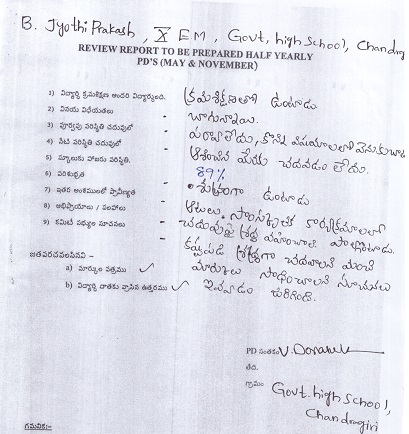 B. Jyothi Prakash, X EM, Govt, high School, Chandrag
REVIEW REPORT TO BE PREPARED HALF YEARLY
PD'S (MAY & NOVEMBER)
1) విద్యార్థి క్రమశిక్షణ అందరి విద్యార్థులలో. క్రమశిక్షణతో ఉంటాడు
2) వినయ విధేయతలు - బాగున్నాయి.
3) పూర్వపు పరిస్థితి చదువులో - పరవాలేదు, కొన్ని విషయాలలో వెనుకబాటు
4) నేటి పరిస్థితి చదువులో - ఆశించిన మేరకు చదవడం లేదు.
5) స్కూలుకు హాజరు పరిస్థితి. - 89%
6) పరిశుభ్రత - శుభ్రంగా ఉంటాడు
7) ఇతర అంశములలో ప్రావీణ్యత - ఆటలు. సాంస్కృతిక కార్యక్రమాలలో పాల్గొంటాడు.
8) అభిప్రాయాలు / సలహాలు - చదువుపై శ్రద్ధ వహించాలి.
9) కమిటీ సభ్యుల సూచనలు - శ్రద్ధగా చదవాలని మంచి
మార్కులు సాధించాలని సూచనలు
జతపరచవలసినవి :-
a) మార్కుల పత్రము ✓ ఇవ్వడం జరిగింది.
b) విద్యార్థి చాతకు వ్రాసిన ఉత్తరము ✓
PD సంతకం V.
తేది.
గ్రామం Govt. high School,
Chandragiri
గమనిక:-